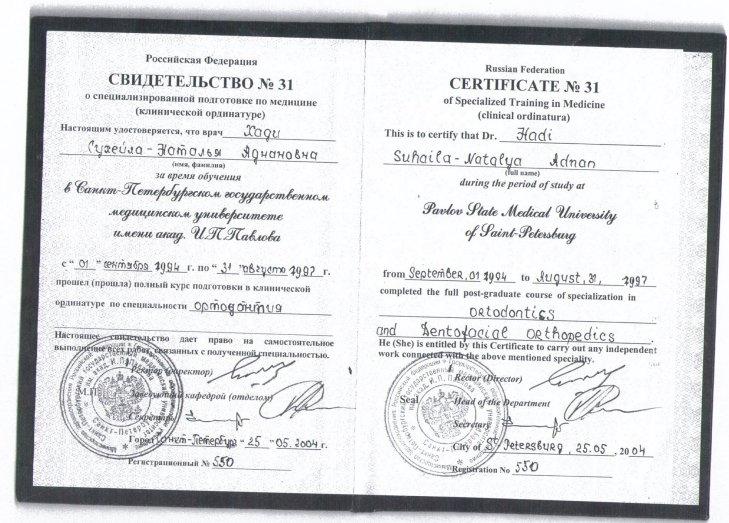 Российская Федерация
СВИДЕТЕЛЬСТВО № 31
о специализированной подготовке по медицине
(клинической ординатуре)
Настоящим удостоверяется, что врач Хади
Сухейла-Наталья Аднановна
(имя, фамилия)
за время обучения
в Санкт-Петербургском государственном
медицинском университете
имени акад. И.П.Павлова
с "01" сентября 1994 г. по "31" августа 1997 г.
прошел (прошла) полный курс подготовки в клинической
ординатуре по специальности ортодонтия
Настоящее свидетельство дает право на самостоятельное
выполнение всех работ, связанных с полученной специальностью.
Ректор (директор)
М.П. Заведующий кафедрой (отделом)
Секретарь
Город Санкт-Петербург "25" 05.2004 г.
Регистрационный № 550
Russian Federation
CERTIFICATE № 31
of Specialized Training in Medicine
(clinical ordinatura)
This is to certify that Dr. Hadi
Suhaila-Natalya Adnan
(full name)
during the period of study at
Pavlov State Medical University
of Saint-Petersburg
from September, 01 1994 to August, 31, 1997
completed the full post-graduate course of specialization in
ortodontics
and Dentofacial orthopedics.
He (She) is entitled by this Certificate to carry out any independent
work connected with the above mentioned speciality.
Rector (Director)
Seal Head of the Department
Secretary
City of St. Petersburg, 25.05. 2004
Registration No 550